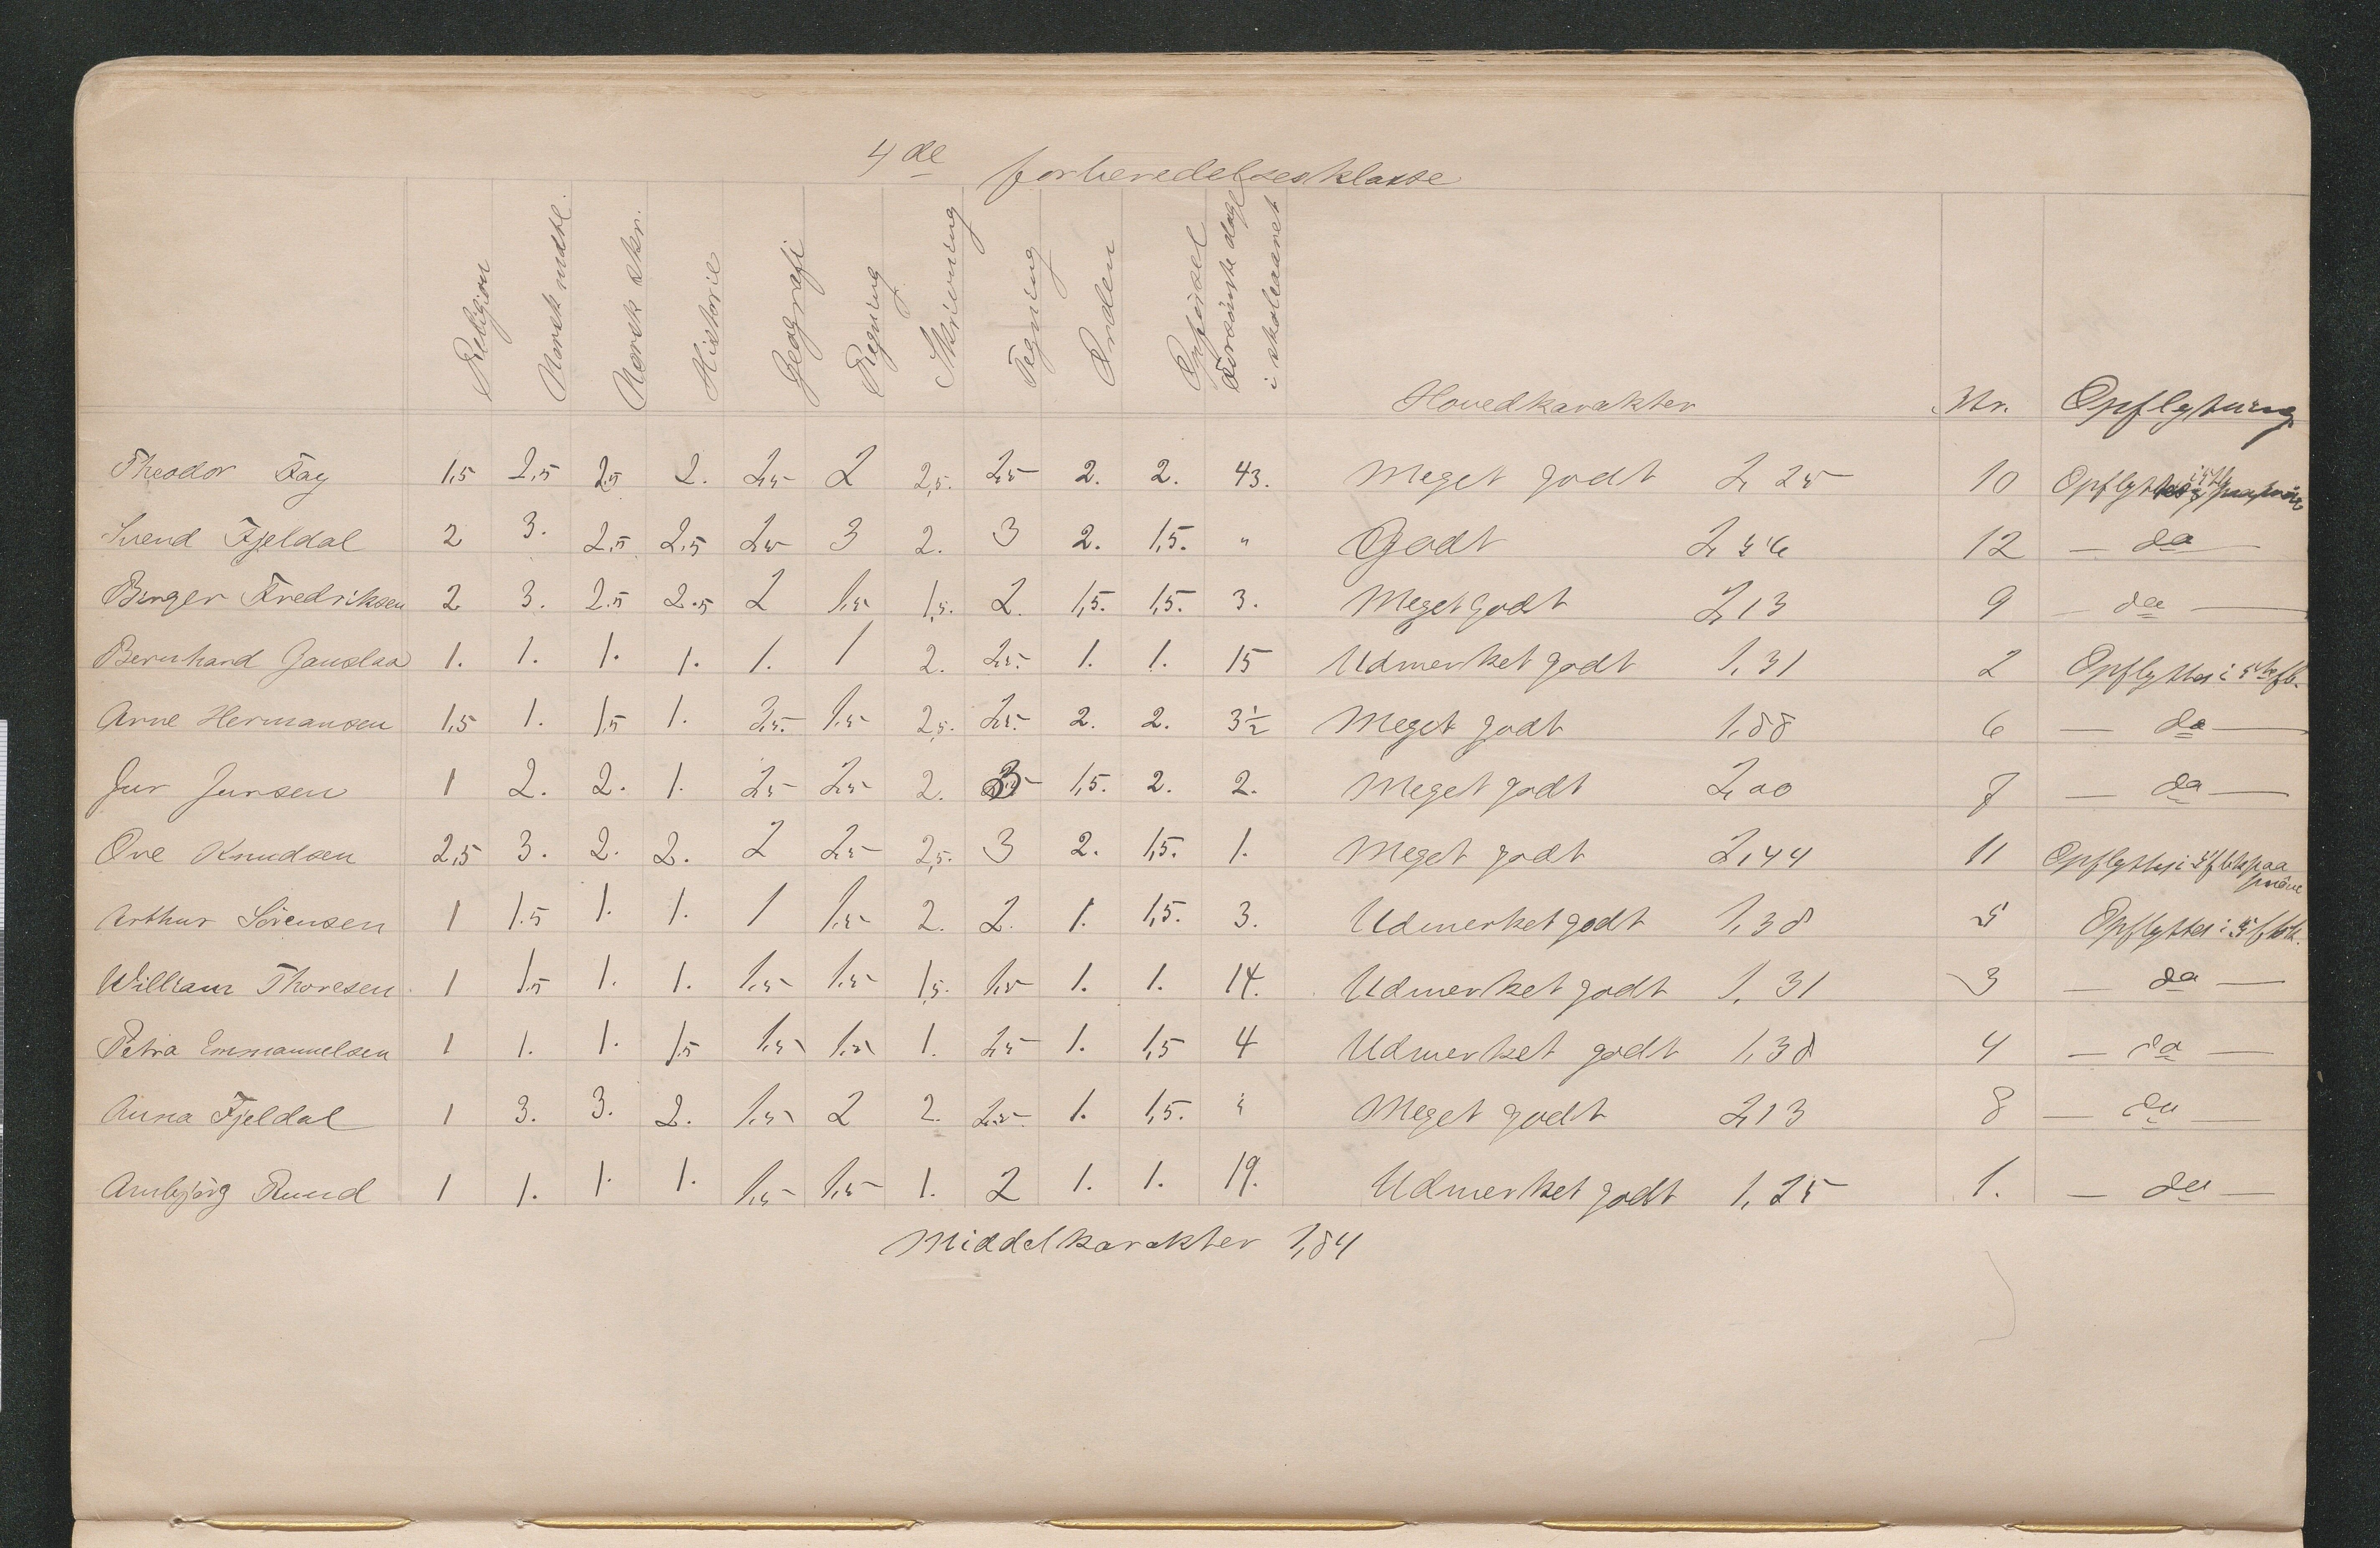 4de forberedelsesklasse
Religion Norsk mdtl. Norsk skr. Historie Geografi Regning Skrivning Tegning Orden Opførsel Forsömte dage i skoleaaret Hovedkarakter Nr. Opflytning
Theodor Fay 1,5 2,5 2,5 2. 2,5 2 2,5. 2,5 2. 2. 43. Meget godt 2,25 10 Opflyttes i 5te paa prøve
Svend Fjeldal 2 3. 2,5 2,5 2,5 3 2. 3 2. 1,5. " Godt 2,56 12 — do —
Birger Fredriksen 2 3. 2.5 2.5 2 1,5 1,5. 2. 1,5. 1,5. 3. Meget godt 2,13 9 — do —
Bernhard Gauslaa 1. 1. 1. 1. 1. 1 2. 2,5. 1. 1. 15 Udmerket godt 1,31 2 Opflyttes i 5te fk.
Arne Hermansen 1,5 1. 1,5 1. 2,5. 1,5 2,5. 2,5. 2. 2. 3½ Meget godt 1,88 6 — do —
Jur Jursen 1 2. 2. 1. 2,5 2,5 2. 3 1,5. 2. 2. Meget godt 2,00 7 — do —
Ove Knudsen 2,5 3. 2. 2. 2 2,5 2,5. 3 2. 1,5. 1. Meget godt 2,44 11 Opflyttes i 5 fbk paa prøve
Arthur Sörensen 1 1.5 1. 1. 1 1,5 2. 2. 1. 1,5. 3. Udmerket godt 1,38 5 Opflyttes i 5 fbk.
William Thoresen 1 1.5 1. 1. 1,5 1,5 1,5. 1,5 1. 1. 14. Udmerket godt 1,31 3 — do —
Petra Emmanuelsen 1 1. 1. 1,5 1,5 1,5 1. 2,5 1. 1,5 4 Udmerket godt 1,38 4 — do —
Anna Fjeldal 1 3. 3. 2. 1,5 2 2. 2,5 1. 1,5. " Meget godt 2,13 8 — do —
Arnbjörg Ruud 1 1. 1. 1. 1,5 1,5 1. 2 1. 1. 19. Udmerket godt 1,25 1. — do —
Middelkarakter 1,84